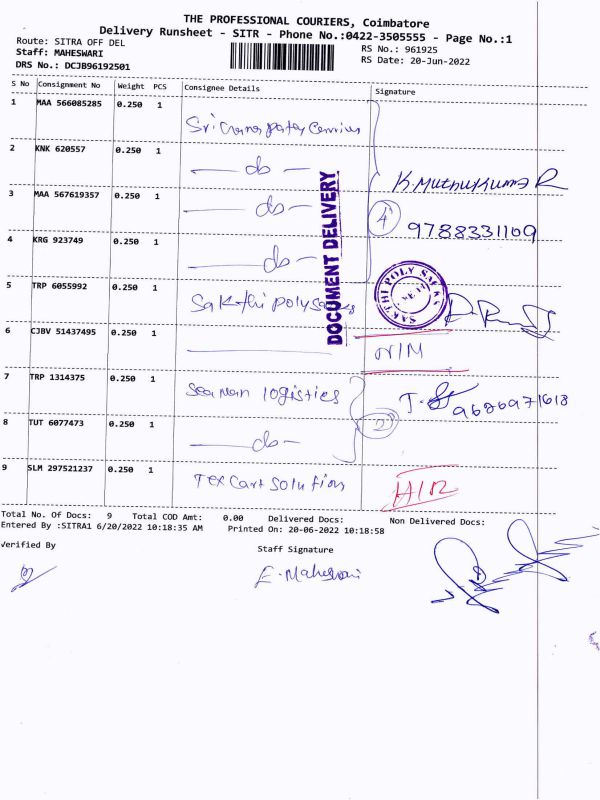 THE PROFESSIONAL COURIERS, Coimbatore
Delivery Runsheet - SITR - Phone No.:0422-3505555 - Page No.:1
Route: SITRA OFF DEL
RS No.: 961925
Staff: MAHESWARI
RS Date: 20-Jun-2022
DRS No.: DCJB96192501
S No Consignment No Weight PCS Consignee Details Signature
1 MAA 566085285 0.250 1
2 KNK 620557 0.250 1 do
K. Muthukumar
3 MAA 567619357 0.250 1 do
4
9788331109
4 KRG 923749 0.250 1 do
DOCUMENT DELIVERY
5 TRP 6055992 0.250 1 Sakthi polysacks
SAKTHI POLY SACKS
6 CJBV 51437495 0.250 1 N/M
7 TRP 1314375 0.250 1 Seaman logistics
9626971618
8 TUT 6077473 0.250 1 do
2
9 SLM 297521237 0.250 1 Tex Cart Solution
Total No. Of Docs: 9 Total COD Amt: 0.00 Delivered Docs: Non Delivered Docs:
Entered By :SITRA1 6/20/2022 10:18:35 AM Printed On: 20-06-2022 10:18:58
Verified By Staff Signature
E. Maheswari